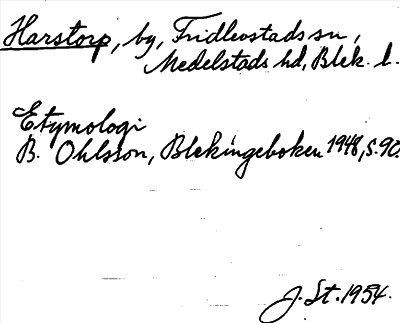 Harstorp, by, Fridlevstads sn,
Medelstads hd, Blek. l.
Etymologi
B. Ohlsson, Blekingeboken 1948, s. 90.
J. St. 1954.